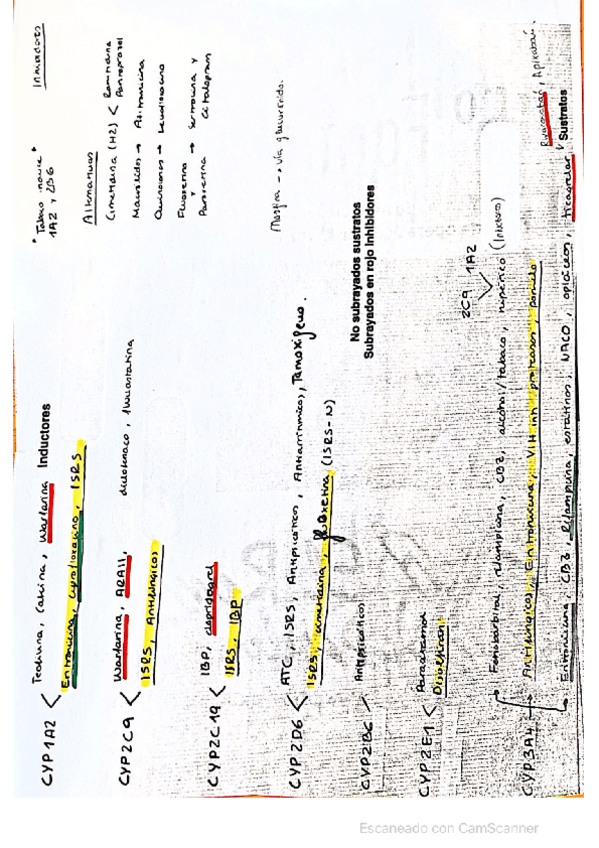 CYP1A2 < Teofilina, Cafeína, Warfarina Inductores
Eritromicina, Ciprofloxacino, ISRS
* Tabaco induce *
1A2 y 2B6
Inhibidores
CYP2C9 < Warfarina, ARAII, diclofenaco, fluvastatina
ISRS, Antifúngicos
Alternativas
Cimetidina (H2) < Ranitidina
Pantoprazol
Macrólidos → Azitromicina
Quinolonas → Levofloxacino
Fluoxetina y
Paroxetina → Sertralina y
Citalopram
CYP2C19 < IBP, clopidogrel
ISRS, IBP
CYP2D6 < ATC, ISRS, Antipsicóticos, Antiarrítmicos, Tamoxífeno.
ISRS, cimetidina, (ISRS-N)
Morfina → vía glucurónido.
CYP2B6 Antipsicóticos
No subrayados sustratos
Subrayados en rojo Inhibidores
CYP2E1 < Paracetamol
Disulfiram
2C9 1A2
CYP3A4 Fenobarbital, rifampicina, CBZ, alcohol/tabaco, hipérico (Inductores)
Antifúngicos, Eritromicina, VIH inh proteasas, pomelo
Eritromicina, CBZ, Rifampicina, estatinas, NACO, opiáceos, ticagrelor, Sustratos
Rivaroxaban, Apixaban.
Escaneado con CamScanner